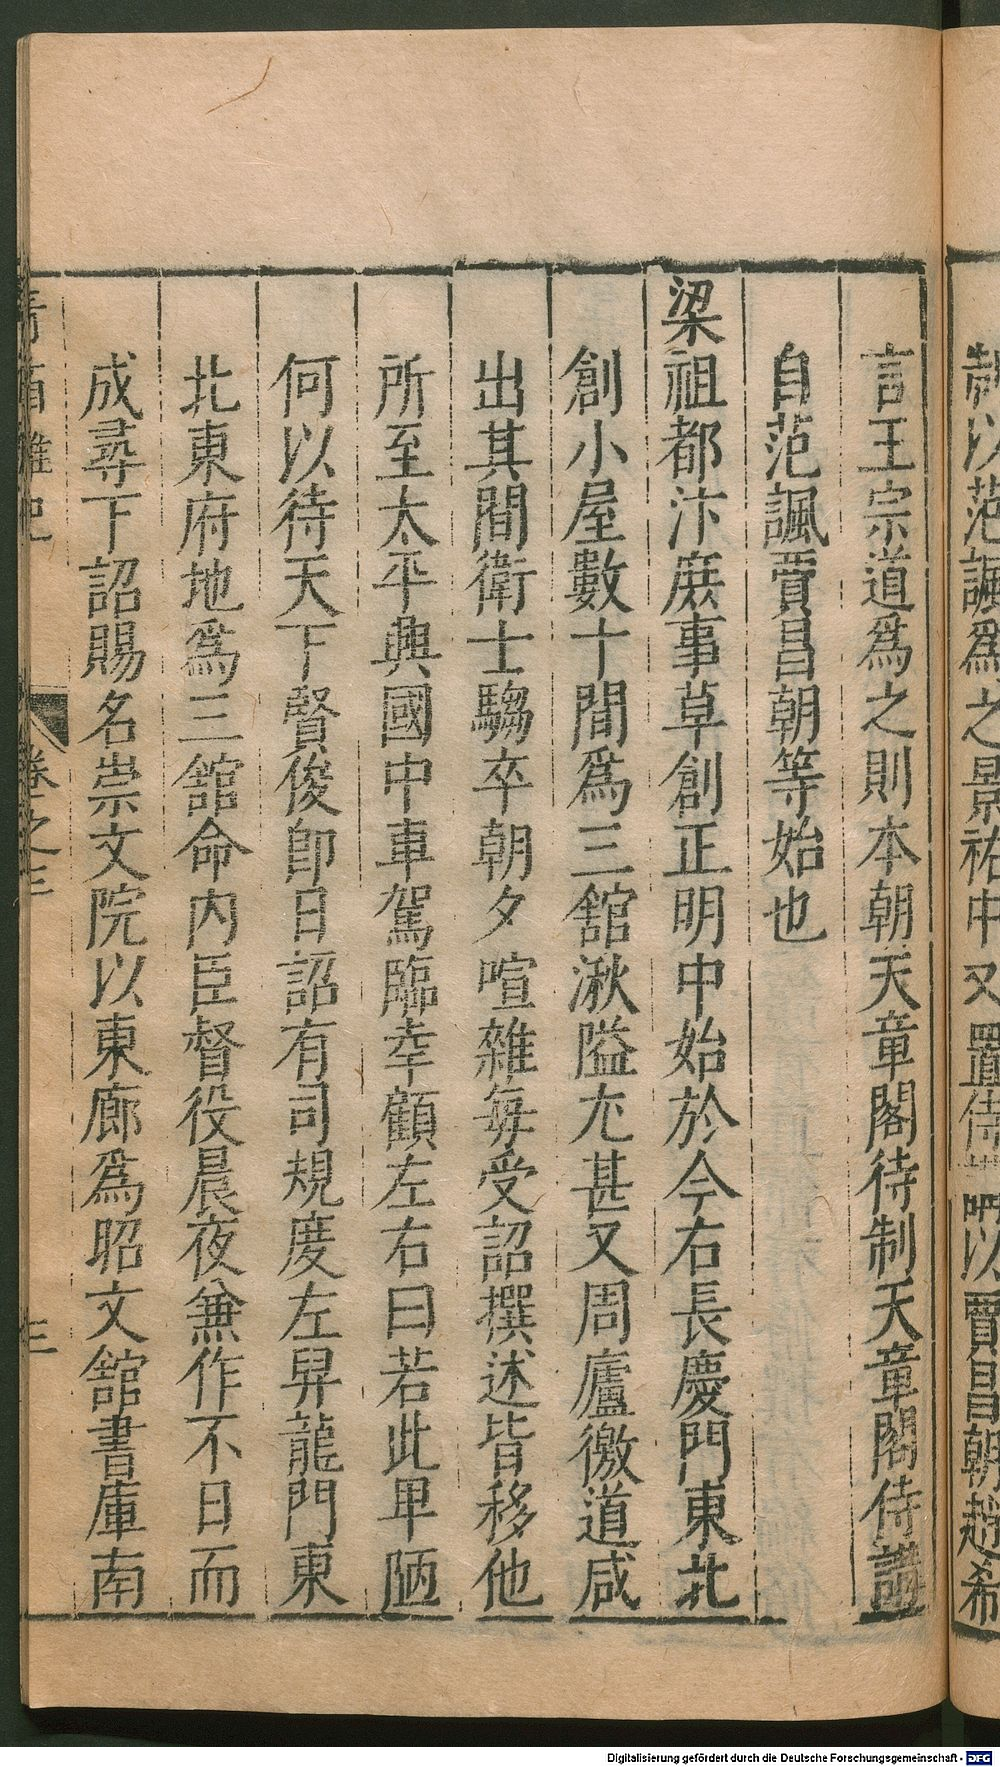 制以范諷爲之景祐中又置侍講以賈昌朝趙希
言王宗道爲之則本朝天章閣待制天章閣侍講
自范諷賈昌朝等始也
梁祖都汴庶事草創正明中始於今右長慶門東北
創小屋數十間爲三舘湫隘尢甚又周廬徼道咸
出其間衛士騶卒朝夕喧雜每受詔撰述皆移他
所至太平興國中車駕臨幸顧左右曰若此卑陋
何以待天下賢俊即日詔有司規度左昇龍門東
北東府地爲三舘命内臣督役晨夜兼作不日而
成尋下詔賜名崇文院以東廊爲昭文舘書庫南
青箱雜記
卷之三
三
Digitalisierung gefördert durch die Deutsche Forschungsgemeinschaft - DFG